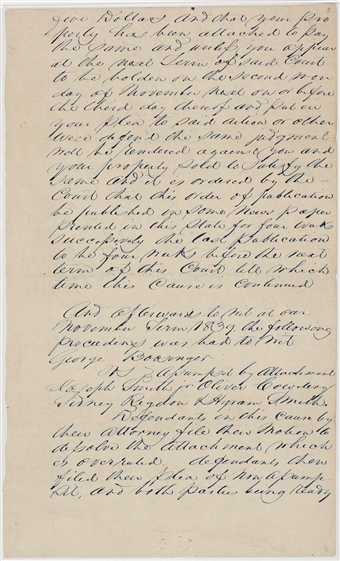 five Dollars and that your pro
perty has been attached to pay
the same and unless you appear
at the next Term of said Court
to be holden on the second mon
day of November next on or before
the third day thereof and put in
your plea to said action or other
wise defend the same judgment
will be rendered against you and
your property sold to satisfy the
same and it is ordered by the
Court that this order of publication
be published in some News paper
Printed in this State for four weeks
successively the last publication
to be four weeks before the next
term of this Court till which
time this Cause is continued
And afterwards to wit at our
November Term 1839 the following
proceedings was had to wit
George
Vs Assumpsit by Attachment
Joseph Smith jr Oliver Cowdery
Sidney Rigdon & Hyram Smith.
Defendants in this cause by
their Attorney file their Motion to
desolve the Attachment which
is overruled. defendants then
filed their plea of Non Assump
sit, and both Parties being ready